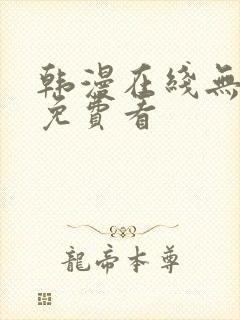 韩漫在线無
免費看
龍帝本尊